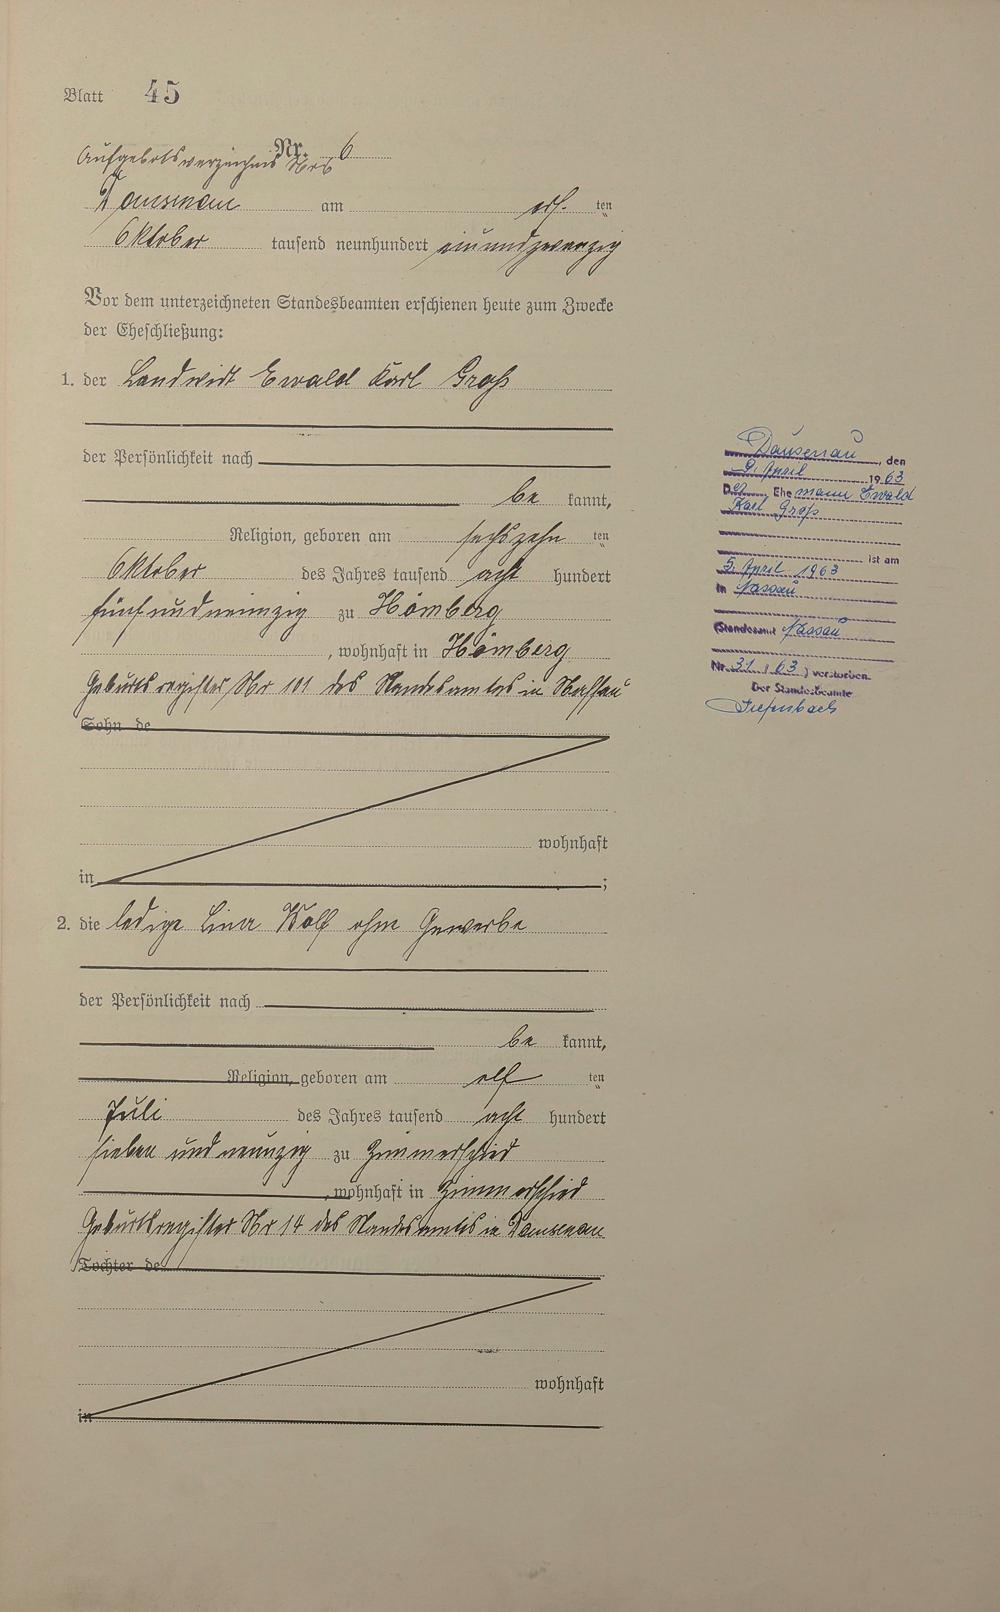 Blatt 45
Nr. 6
Aufgebotsverzeichnis Nr 6
Dausenau am ten
Oktober tausend neunhundert einundzwanzig
Vor dem unterzeichneten Standesbeamten erschienen heute zum Zwecke
der Eheschließung:
1. der Landwirt Ewald Karl Groß
der Persönlichkeit nach
be kannt,
Religion, geboren am sechszehn ten
Oktober des Jahres tausend acht hundert
fünfundneunzig zu Hömberg
, wohnhaft in Hömberg
Geburtsregister Nr 101 des Standesamtes in Nassau
Sohn de
wohnhaft
in ;
2. die ledige Lina Wolf ohne Gewerbe
der Persönlichkeit nach
be kannt,
Religion, geboren am elf ten
Juli des Jahres tausend acht hundert
sieben und neunzig zu Zimmerschied
, wohnhaft in Zimmerschied
Geburtsregister Nr 14 des Standesamtes in Dausenau
Tochter de
wohnhaft
in
Dausenau, den
9. April 1963
Der Ehemann Ewald
Karl Groß
ist am
5. April 1963
in Nassau
(Standesamt Nassau
Nr. 31/63) verstorben.
Der Standesbeamte
Diefenbach